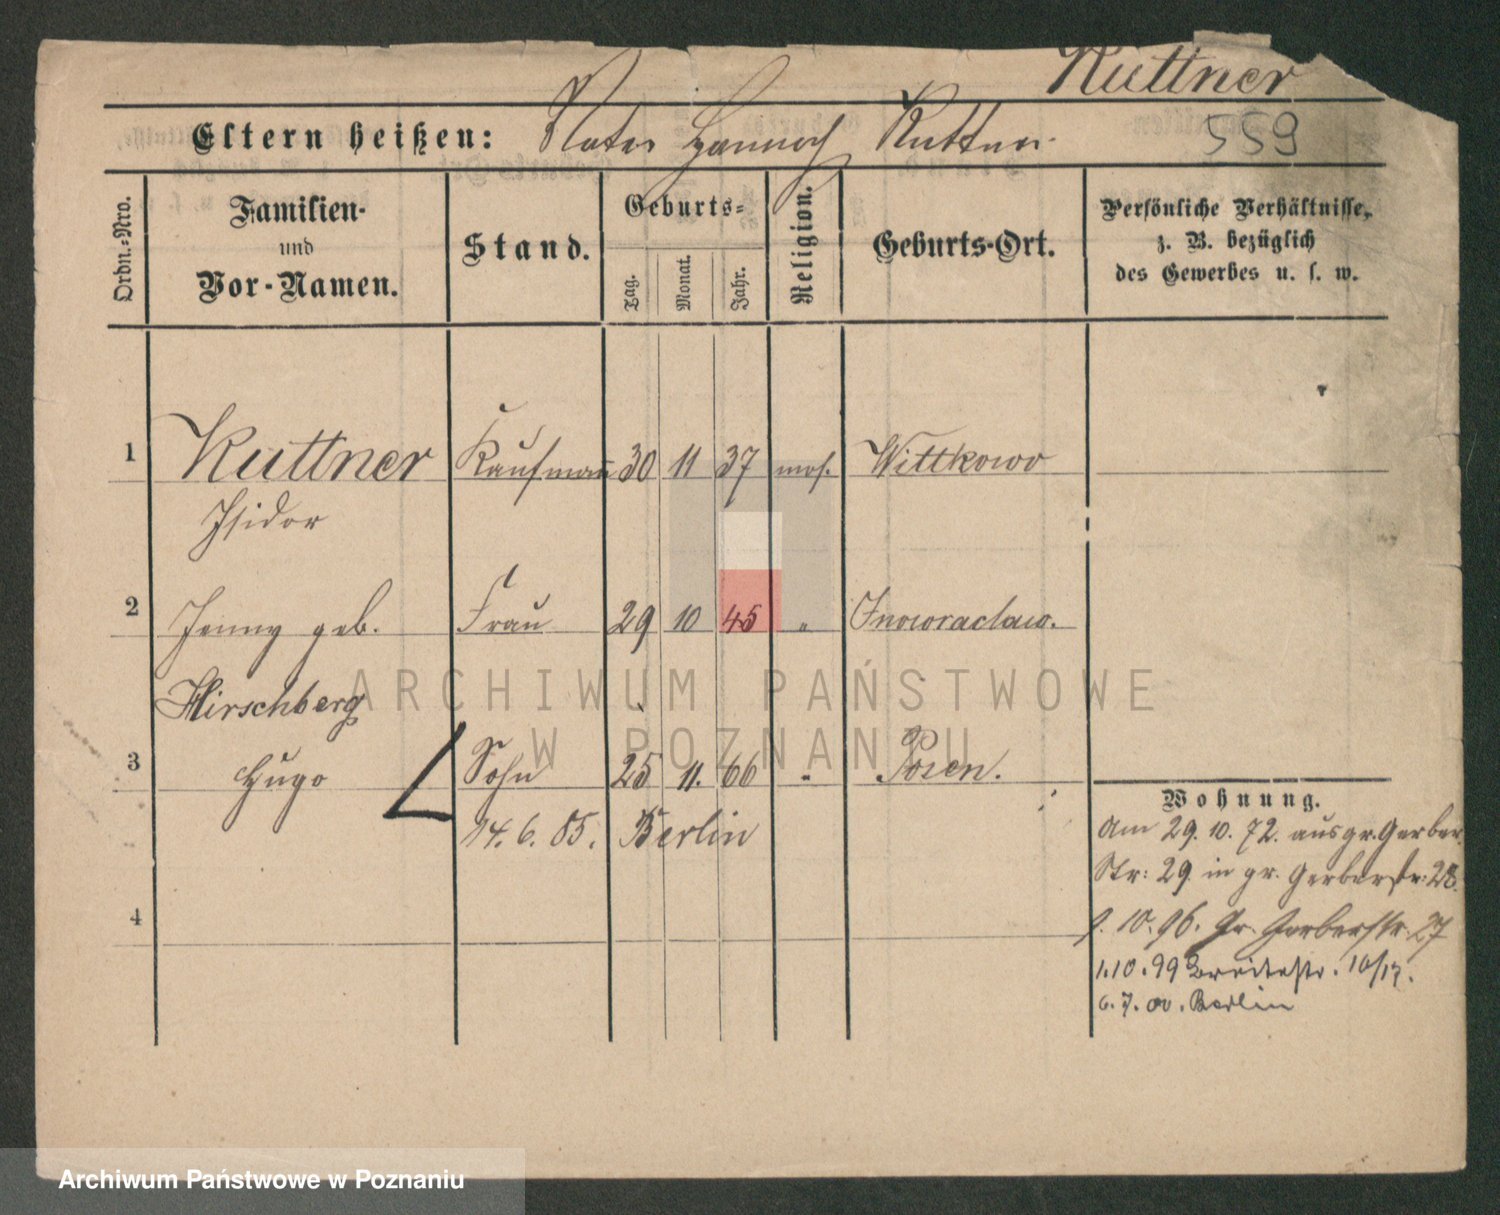 Kuttner
Eltern heißen: Vater Hannoch Kuttner
559
Ordn.=Nro.
Familien-
und
Vor-Namen.
Stand.
Geburts=
Tag.
Monat.
Jahr.
Religion.
Geburts-Ort.
Persönliche Verhältnisse,
z. B. bezüglich
des Gewerbes u. s. w.
1 Kuttner Kaufmann 30 11 37 mos. Wittkowo
Isidor
2 Jenny geb. Frau 29 10 45 " Inowraclaw.
Hirschberg
3 Hugo Sohn 25 11. 66 " Posen.
14. 6. 85. Berlin
4
Wohnung.
Am 29. 10. 72. aus gr. Gerber
Str: 29 in gr. Gerberstr: 28.
1. 10. 96. Gr. Gerberstr. 27
1.10.99 Breitestr. 16/17.
6. 7. 00. Berlin
ARCHIWUM PAŃSTWOWE
W POZNANIU
Archiwum Państwowe w Poznaniu